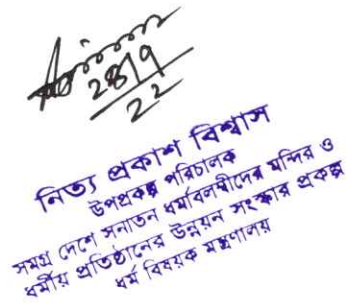 28/9
22
নিত্য প্রকাশ বিশ্বাস
উপপ্রকল্প পরিচালক
সমগ্র দেশে সনাতন ধর্মাবলম্বীদের মন্দির ও
ধর্মীয় প্রতিষ্ঠানের উন্নয়ন সংস্কার প্রকল্প
ধর্ম বিষয়ক মন্ত্রণালয়